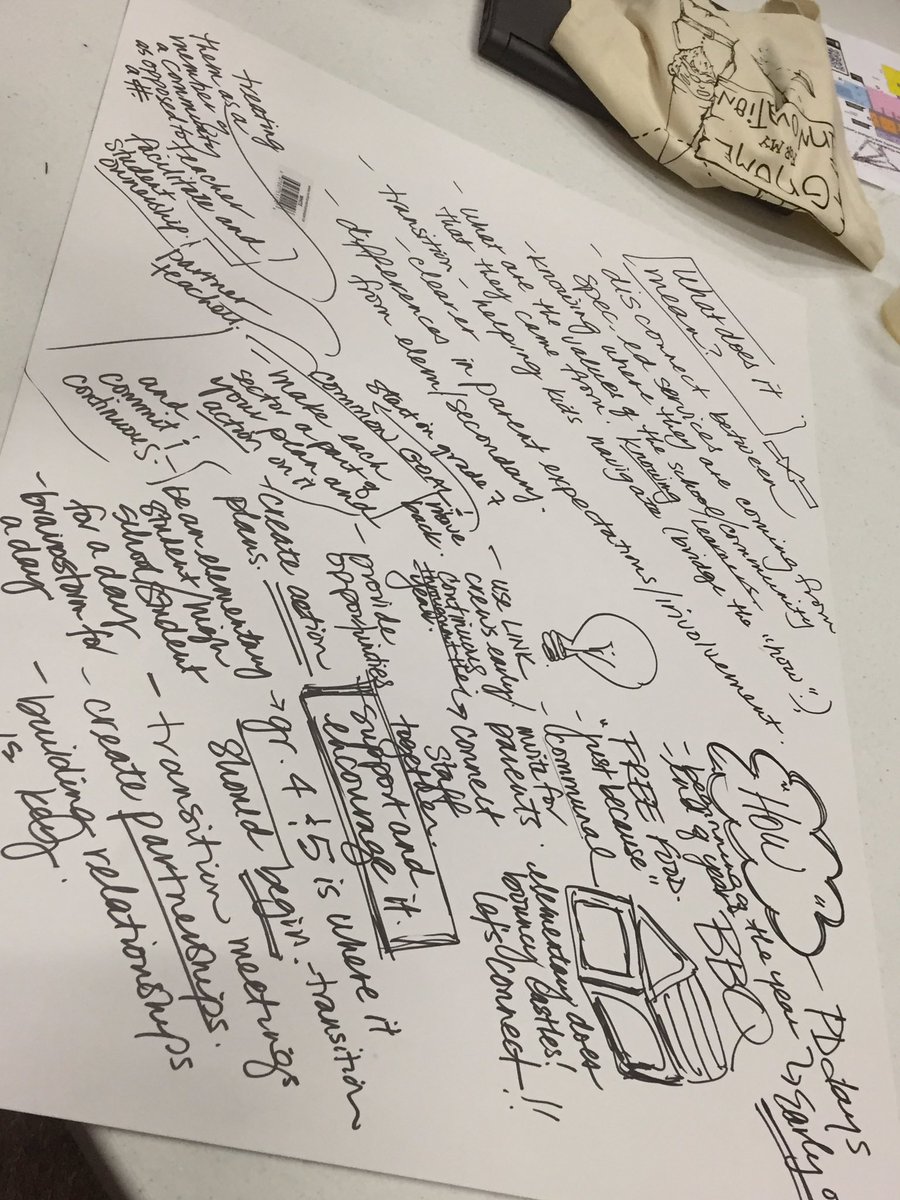 What does it
mean?
- disconnect between
spec. ed services
- where they are coming from
- knowing the school/community
values & Knowing leaders.
- what are the kids (bridge the "how":)
that they came from
- helping kids navigate
transition - clearer
- differences in parent expectations/involvement.
from elem/secondary.
treating
them as a
member of
a community
as opposed to
a #.
teacher
facilitate and
student
ownership!
partner
teachers.
common goal
start in grade 7
& move
back.
- make each
sector a part of
your plan and
action on it
and
commit &
continuous.
- create action
plans.
- be an elementary
student/high
school student
for a day
- brainstorm for
a day
- provide
opportunities
- use LINK
crews early/
continuing
throughout the
year.
→ connect
Staff
together.
support and
encourage it.
→ gr. 4 & 5 is where it
should begin. - transition
meetings
- transition
- create partnerships.
- building relationships
is key.
"HOW"
- PD days
- beginning of the year → early
- end of year BBQ
FREE FOOD.
"just because"
- Communal
- invite for
parents
- elementary does
bouncy castles!
let's connect!!
GNOME
FOR MY
INNOVATION